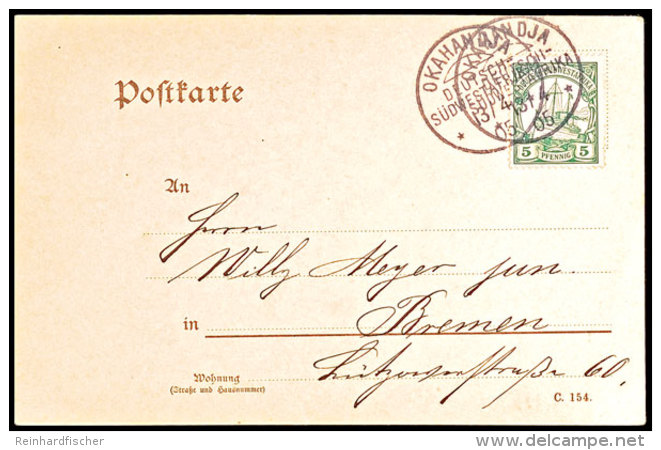 OKAHANDJA
DEUTSCH-
SÜDWESTAFRIKA
13/4
05
OKAHANDJA
DEUTSCH-
SÜDWESTAFRIKA
13/4
05
5 PFENNIG 5
Postkarte
An
Herrn
Willy Meyer jun.
in Bremen
Lützowerstraße 60.
Wohnung
(Straße und Hausnummer)
C. 154.
Reinhardfischer
delcampe.net